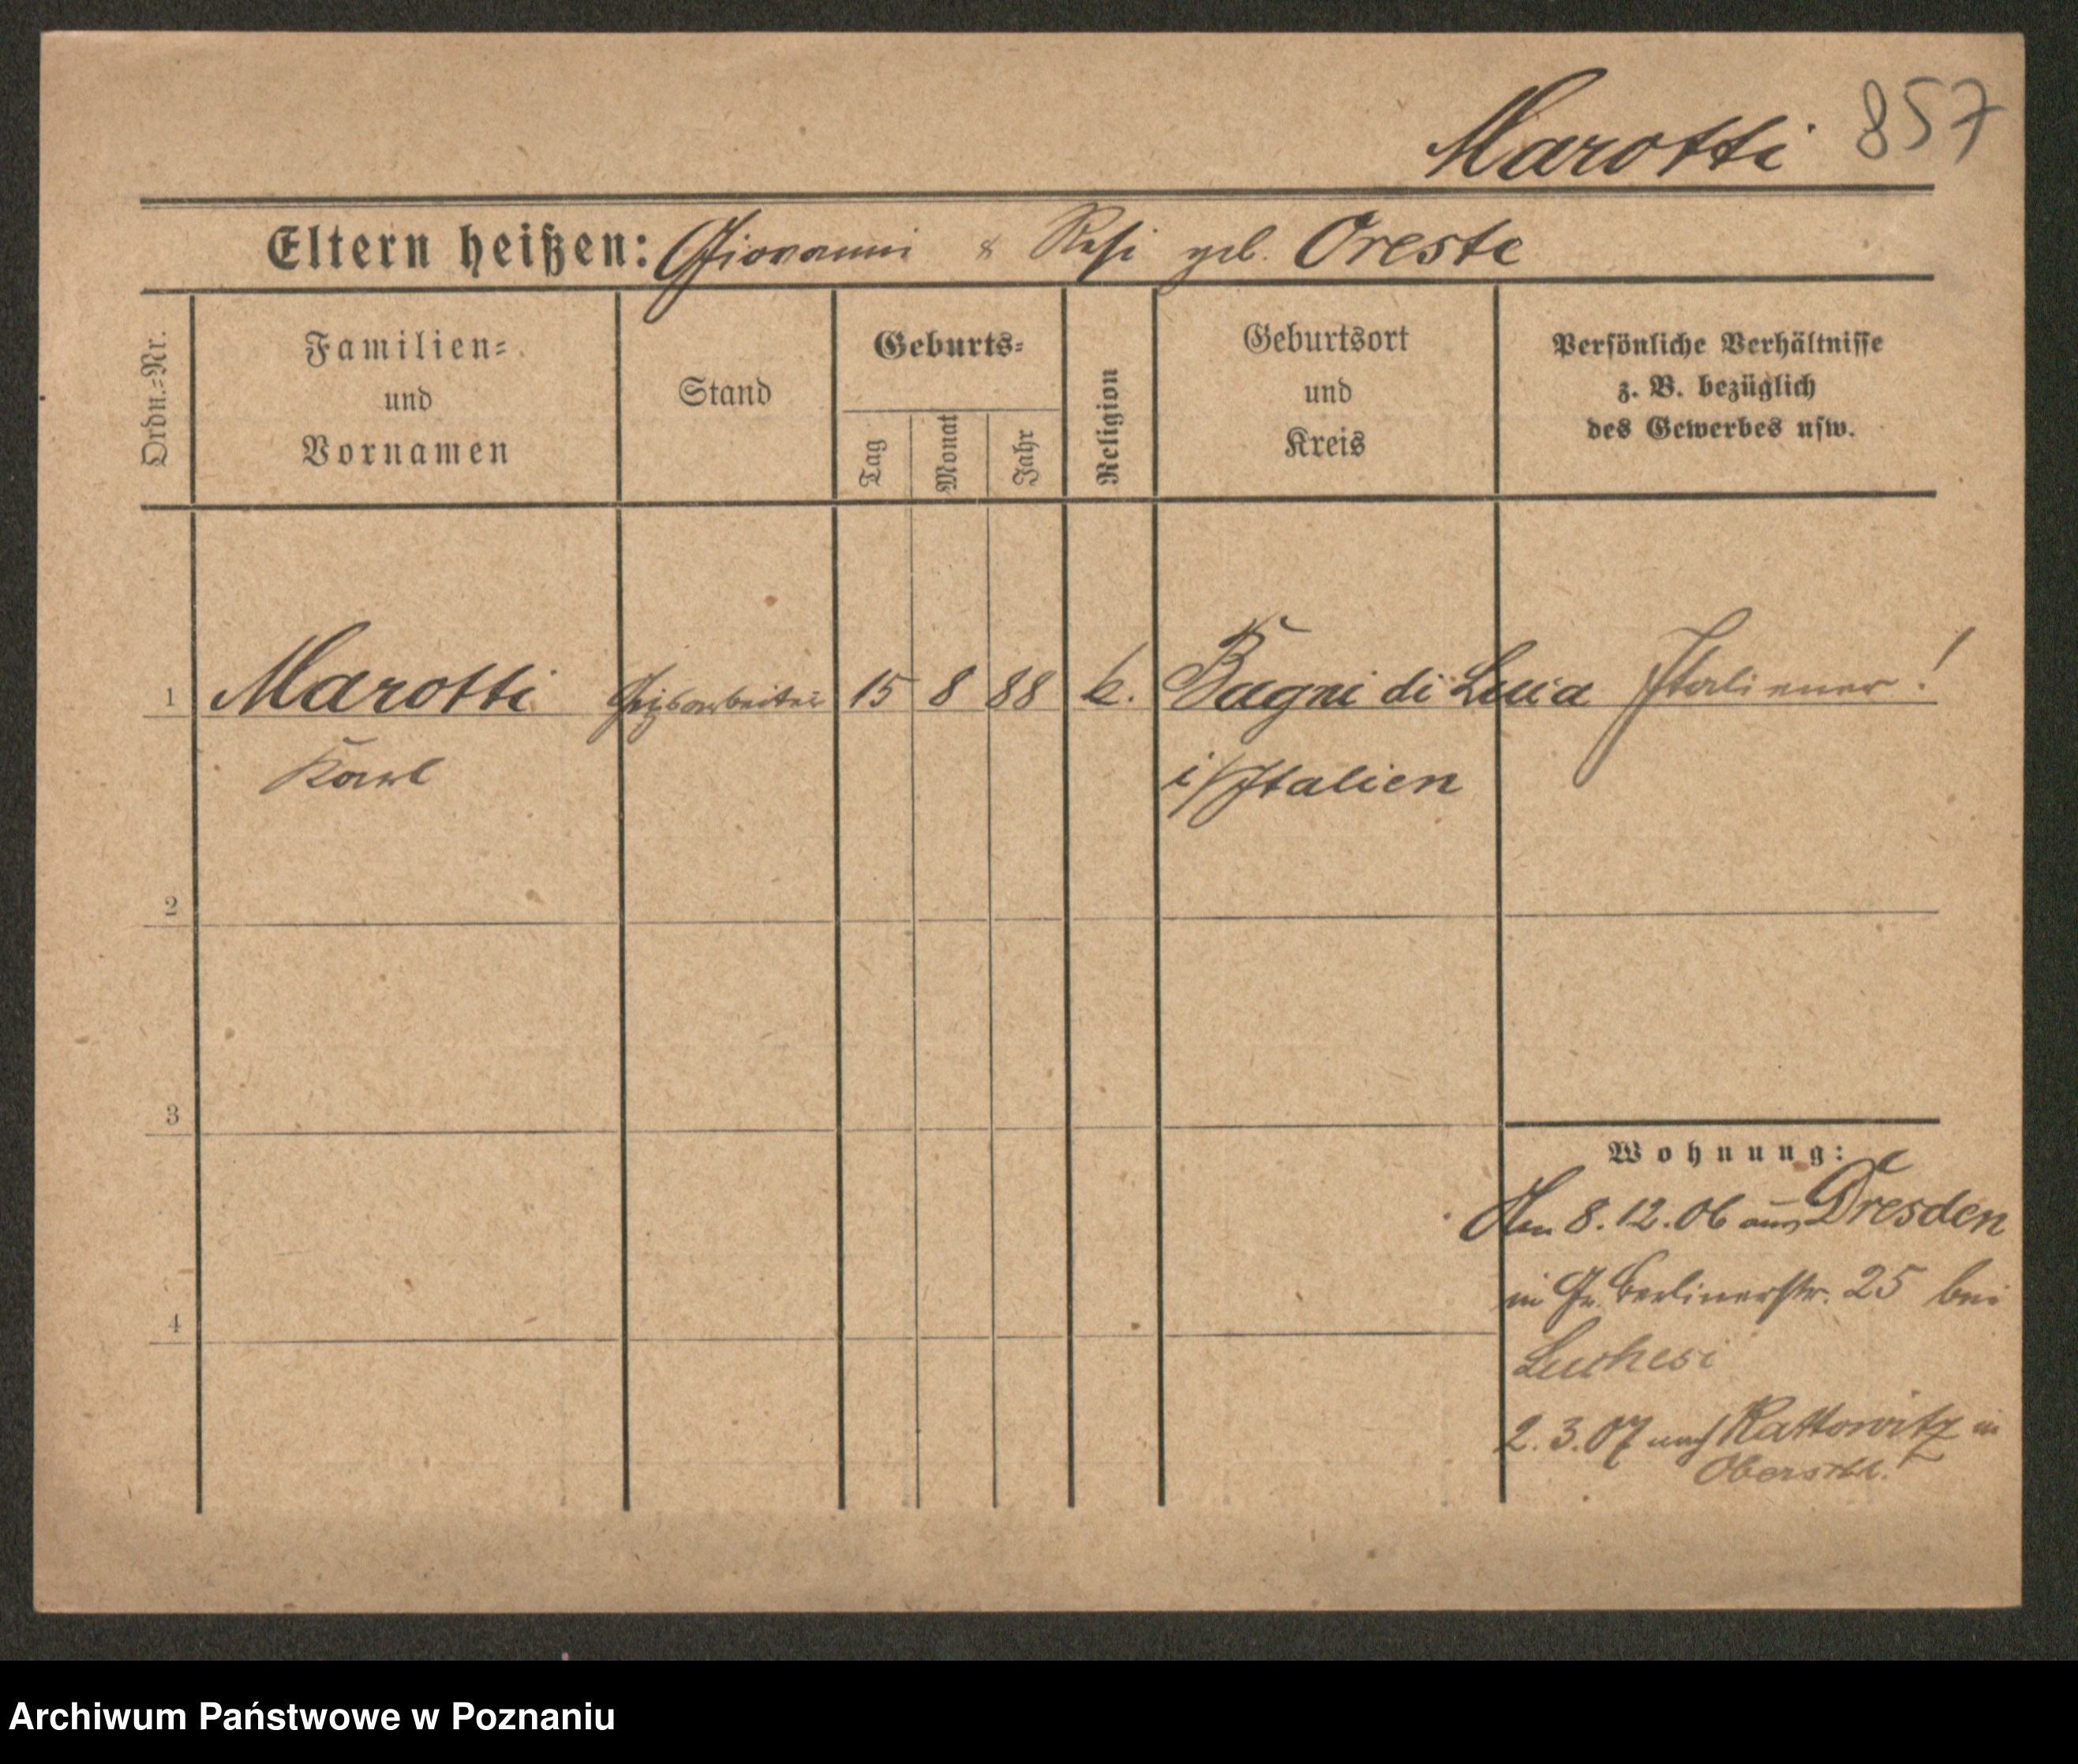 Marotti 857
Eltern heißen: Giovanni & Resi geb. Oreste
Ordn.-Nr.
Familien- und Vornamen
Stand
Geburts-
Tag
Monat
Jahr
Religion
Geburtsort und Kreis
Persönliche Verhältnisse
z. B. bezüglich
des Gewerbes usw.
1 Marotti Gipsarbeiter 15 8 88 k. Bagni di Luca Italiener!
Karl i/Italien
2
3
Wohnung:
8.12.06 aus Dresden
in Gr. Berlinerstr. 25 bei
4
Luchesi
2.3.07 nach Kattowitz in
Oberschl.
Archiwum Państwowe w Poznaniu